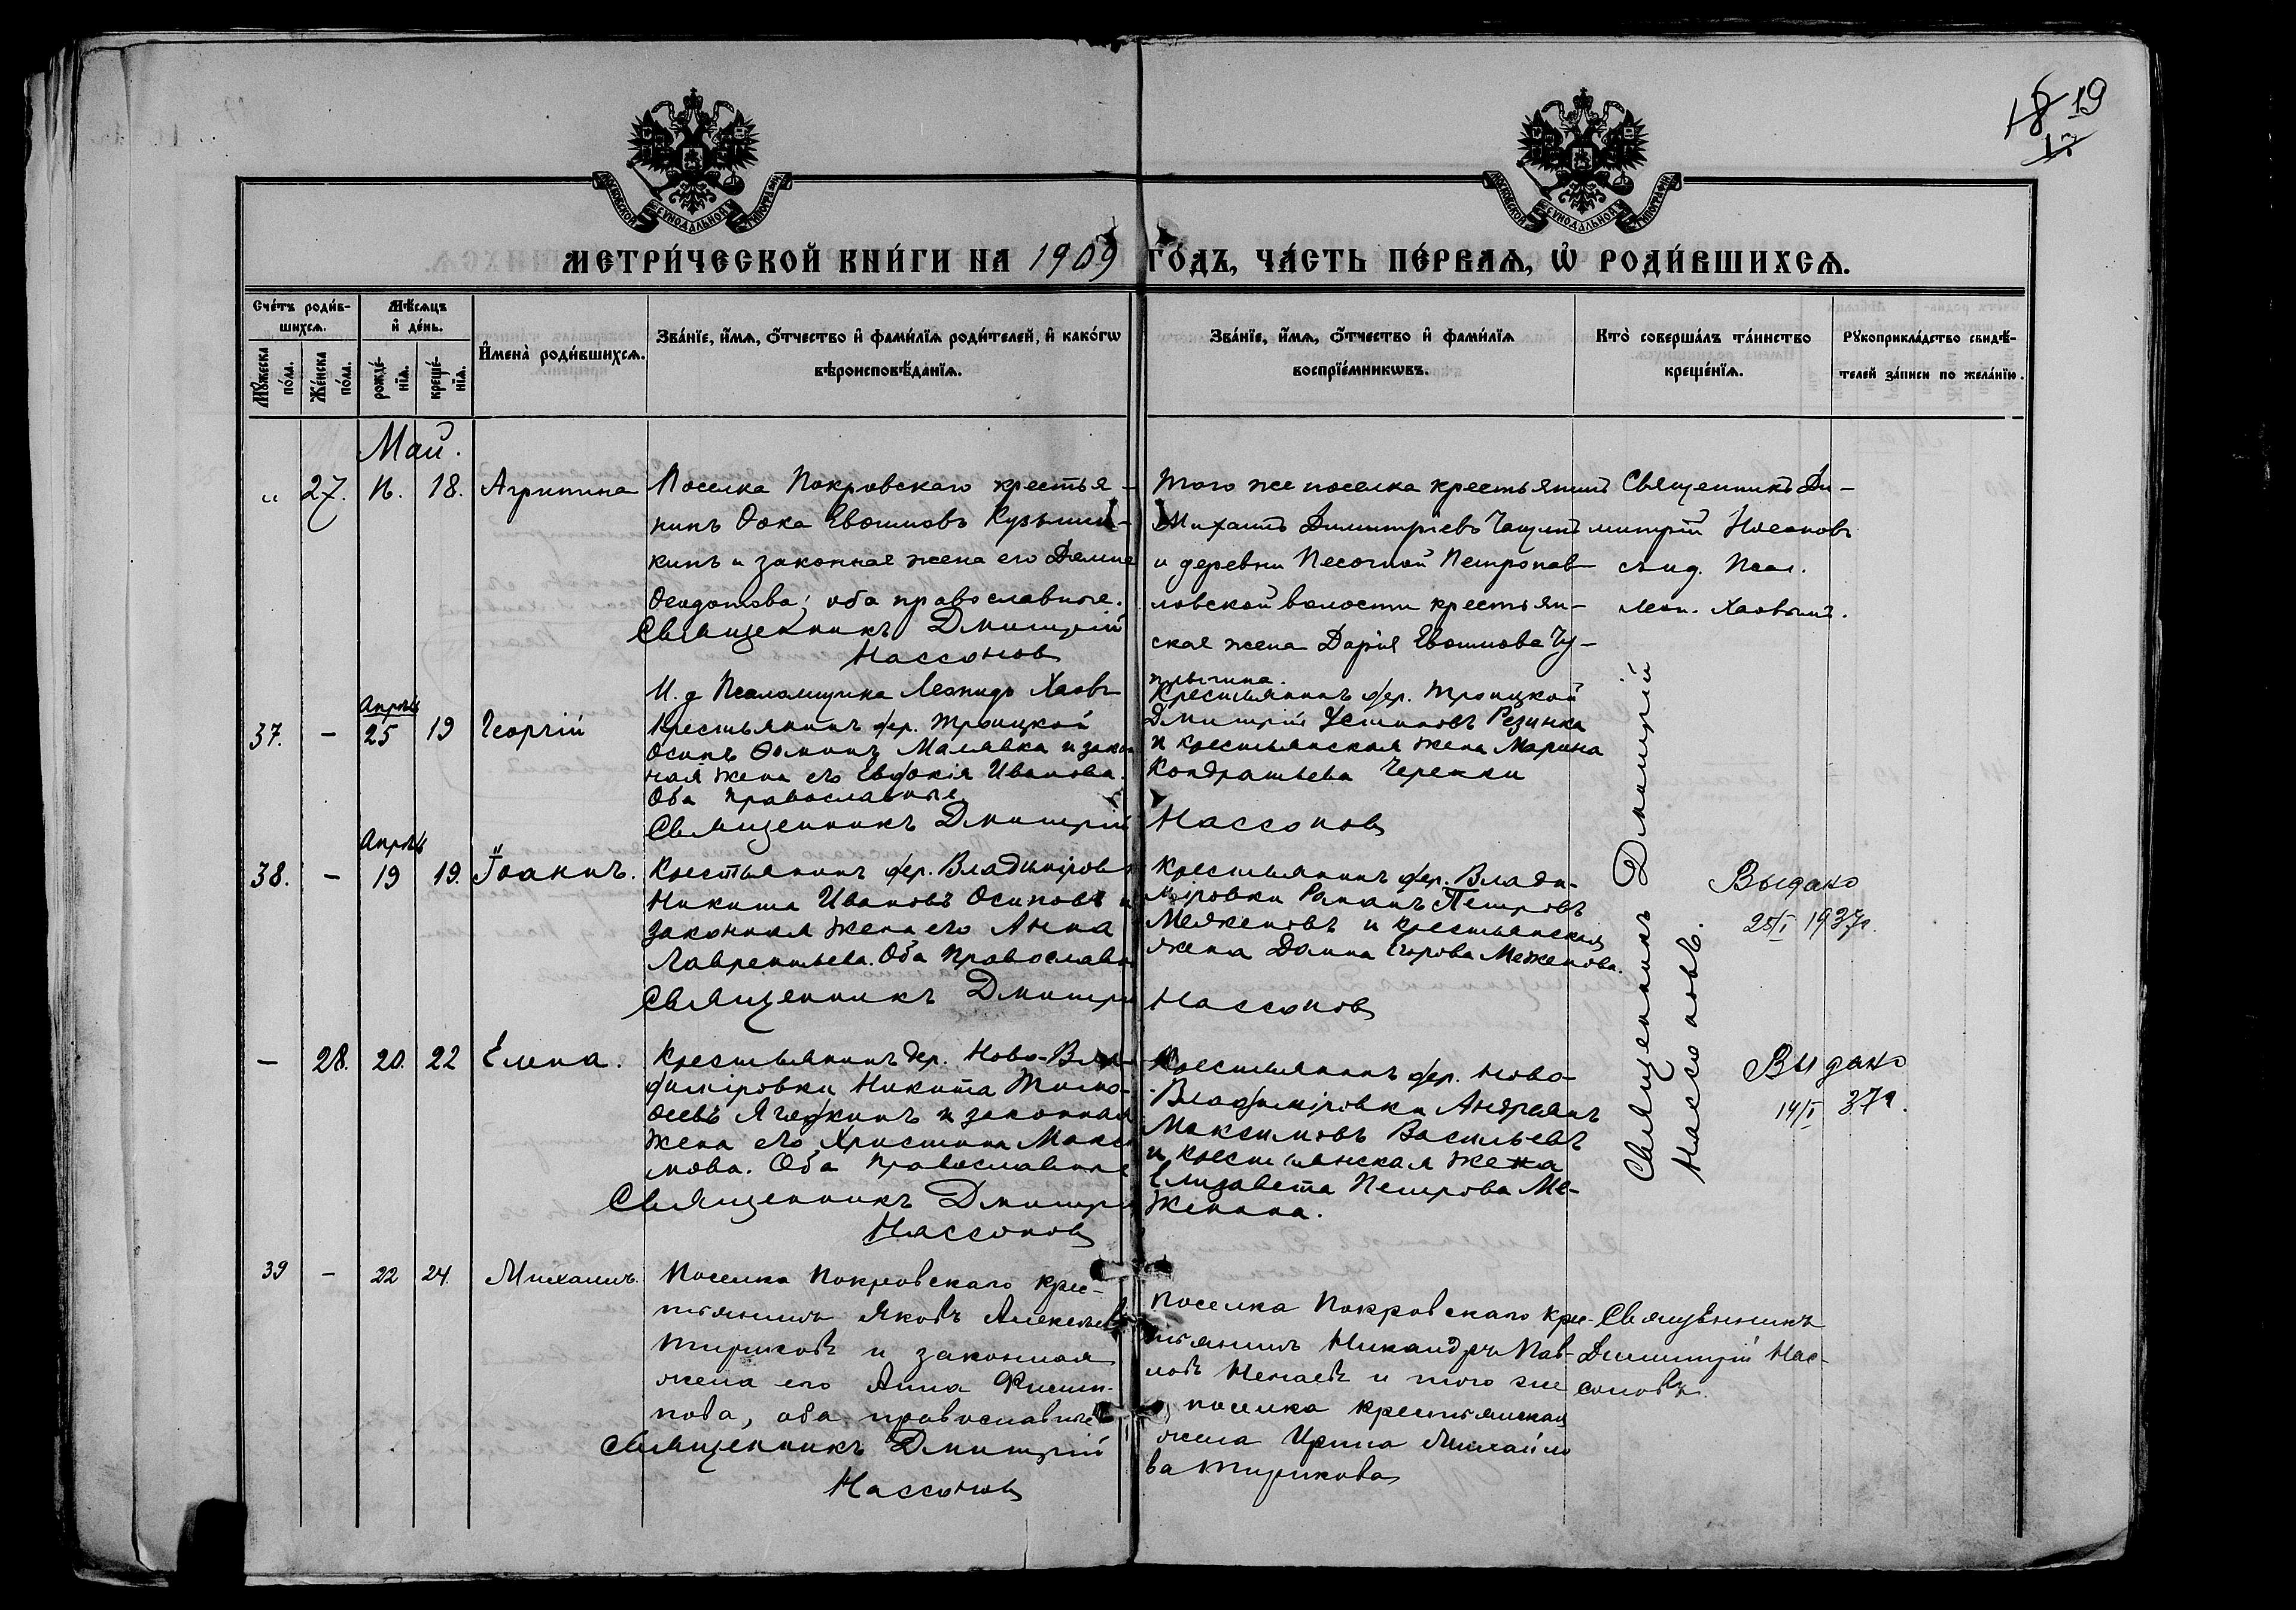 18 19
17
МЕТРИ́ЧЕСКОЙ КНИ́ГИ НА 1909 ГО́ДЪ, ЧА́СТЬ ПЕ́РВАѦ, Ѽ РОДИ́ВШИХСѦ.
Сче́тъ роди́в-
шихсѧ.
Мѣ́сѧцъ
и҆ де́нь.
Мꙋ́жеска по́ла.
Же́нска по́ла.
рожде́-
нїѧ.
креще́-
нїѧ.
И҆мена̀ роди́вшихсѧ.
Зва́нїе, и҆́мѧ, ѻ҆́тчество и҆ фами́лїѧ роди́телей, и҆ како́гѡ
вѣроисповѣ́данїѧ.
Зва́нїе, и҆́мѧ, ѻ҆́тчество и҆ фами́лїѧ
воспрїе́мникѡвъ.
Кто̀ соверша́лъ та́инство
креще́нїѧ.
Рꙋкоприкла́дство свидѣ́-
телей за́писи по жела́нїю.
Май.
" 27. 18. Агрипина
Поселка Покровскаго крестья-
нинъ Фока Евфимовъ Кузьмин-
кинъ и законная жена его
Феодотова; оба православные.
Священникъ Дмитрій
Нассонов
Того же поселка крестьянинъ
Михаилъ Димитріевъ
и деревни Песочной Петропав-
ловской волости крестьян-
ская жена Дарія Евфимова Чу-
Священникъ Ди-
митрій Носоновъ
Псал.
Леон. Хаовъ
И. д Псаломщика Леонидъ Хаовъ
37. — Апрѣль 25 19 Георгій
Крестьянинъ дер. Троицкой
Осипъ Фоминъ Малявка и закон
ная жена его Евдокія Иванова.
Оба православные
Священникъ Дмитрій Нассонов
Крестьянинъ дер. Троицкой
Дмитрій Устиновъ Резинка
и крестьянская жена Марина
Кондратьева
38. — Апрѣль 19 19. Іоаннъ.
Крестьянинъ дер. Владиміров
Никита Ивановъ Осиповъ и
законная жена его Анна
Лаврентьева. Оба Православн
Священникъ Дмитрій Нассонов
Крестьянинъ дер. Влади-
міровки Романъ Петровъ
Меженовъ и крестьянская
жена Домна Егорова Меженова.
Священникъ Дмитрій
Нассоновъ.
Выдано
25/I 1937г.
— 28. 20. 22 Елена.
Крестьянинъ дер. Ново-Вла
диміровки Никита Тимо-
феевъ Ягодкинъ и законная
жена его Христина Макси
мова. Оба Православные
Священникъ Дмитрі
Нассонов
Крестьянинъ дер. Ново-
Владиміровки Андреянъ
Максимовъ Васильевъ
и крестьянская жена
Елизавета Петрова Ме-
женина.
Выдано
14/I 37г.
39 — 22 24. Михаилъ.
Поселка Покровскаго крес-
тьянинъ Яковъ Алексѣевъ
Тириковъ и законная
жена его Анна Филип-
пова, оба православные
Священникъ Дмитрій
Нассонов
Поселка Покровскаго крес-
тьянинъ Никандръ Пав-
ловъ Нечаевъ и того же
поселка крестьянская
жена Ирина Михайло
ва Тирикова
Священникъ
Димитрій Нас-
соновъ.